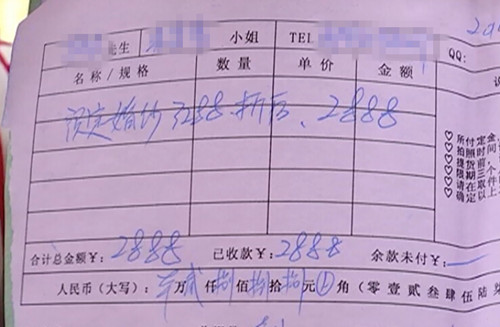 先生 小姐 TEL QQ:
名称/规格 数量 单价 金额
预定婚纱 3288.折后、2888
♡所付定金、
♡拍照时间
♡提货前
♡限期三个
♡请在取件
♡确定以上
合计总金额¥: 2888 已收款¥: 2888 余款未付¥:
人民币(大写): 万贰仟捌佰捌拾捌元 角(零壹贰叁肆伍陆柒